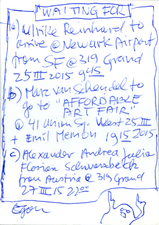 WAITING FOR
a) Ulrike Reinhard to
arrive @ Newark Airport
from SF @ 319 Grand
25 III 2015 9:15
b) Marc van Scheydel to
go to "AFFORDABLE
ART FAIR"
@ 41 Union Sq. West 25 III
+ Emil Memon 19 15 2015
c) Alexander Andrea Julia
Florian Schwambeck
from Austria @ 319 Grand
27 III 15 2200